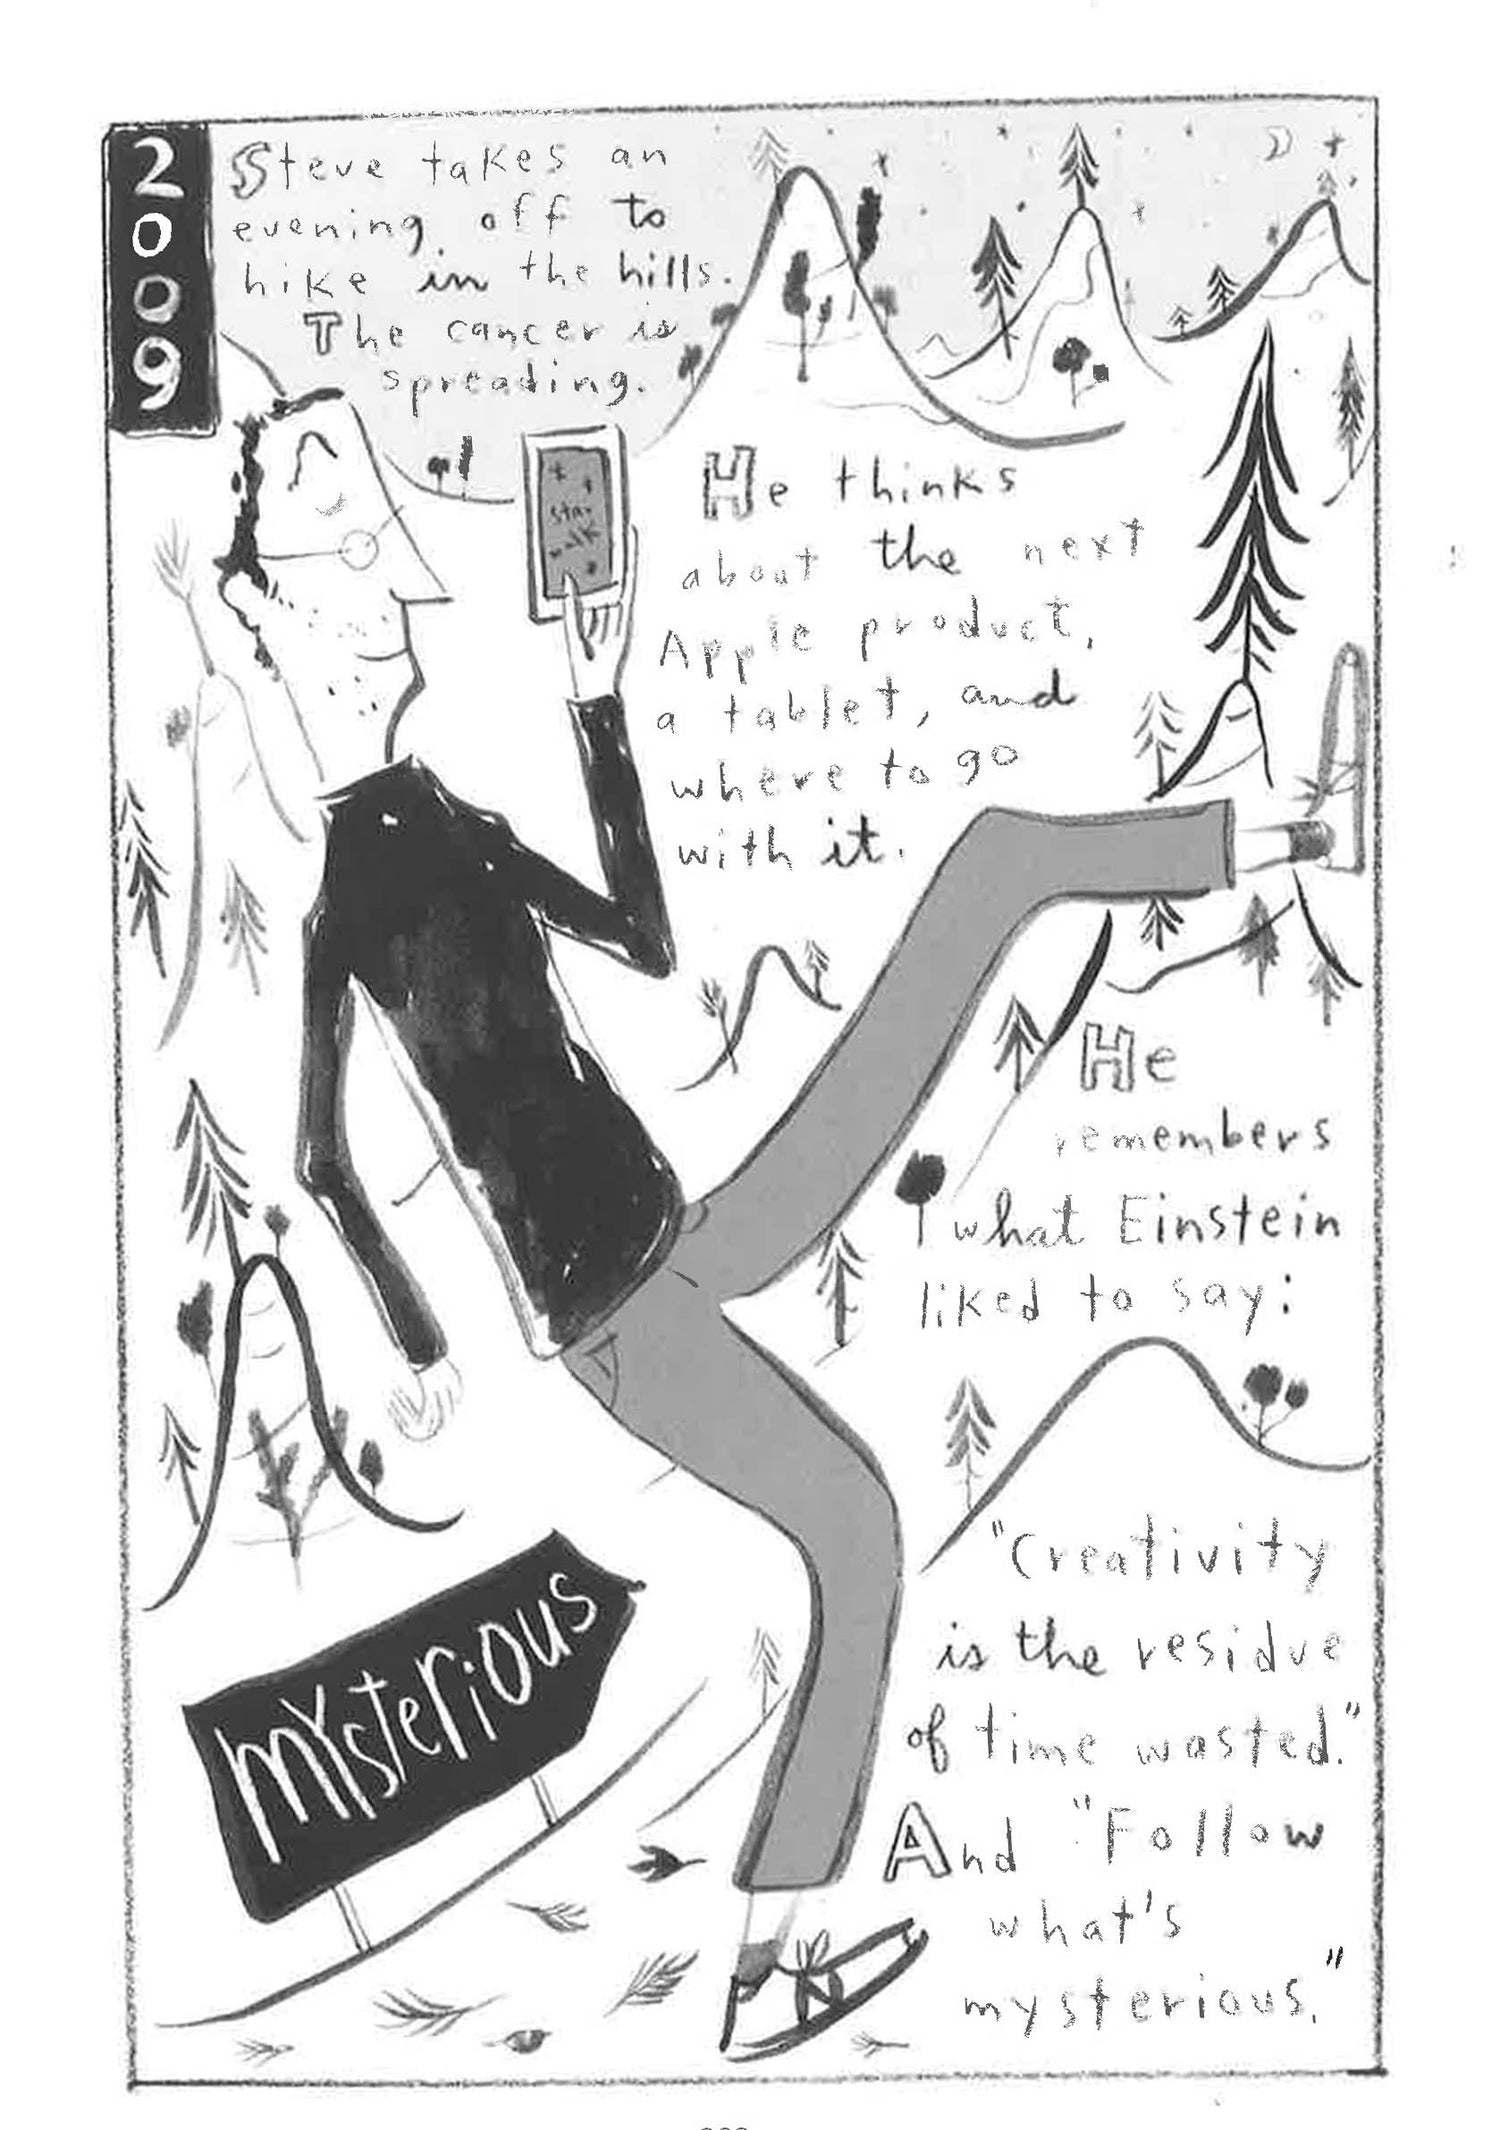 2
0
0
9
Steve takes an
evening off to
hike in the hills.
The cancer is
spreading.
star
walk
He thinks
about the next
Apple product,
a tablet, and
where to go
with it.
He
remembers
what Einstein
liked to say:
"Creativity
is the residue
of time wasted."
And "Follow
what's
mysterious."
mysterious